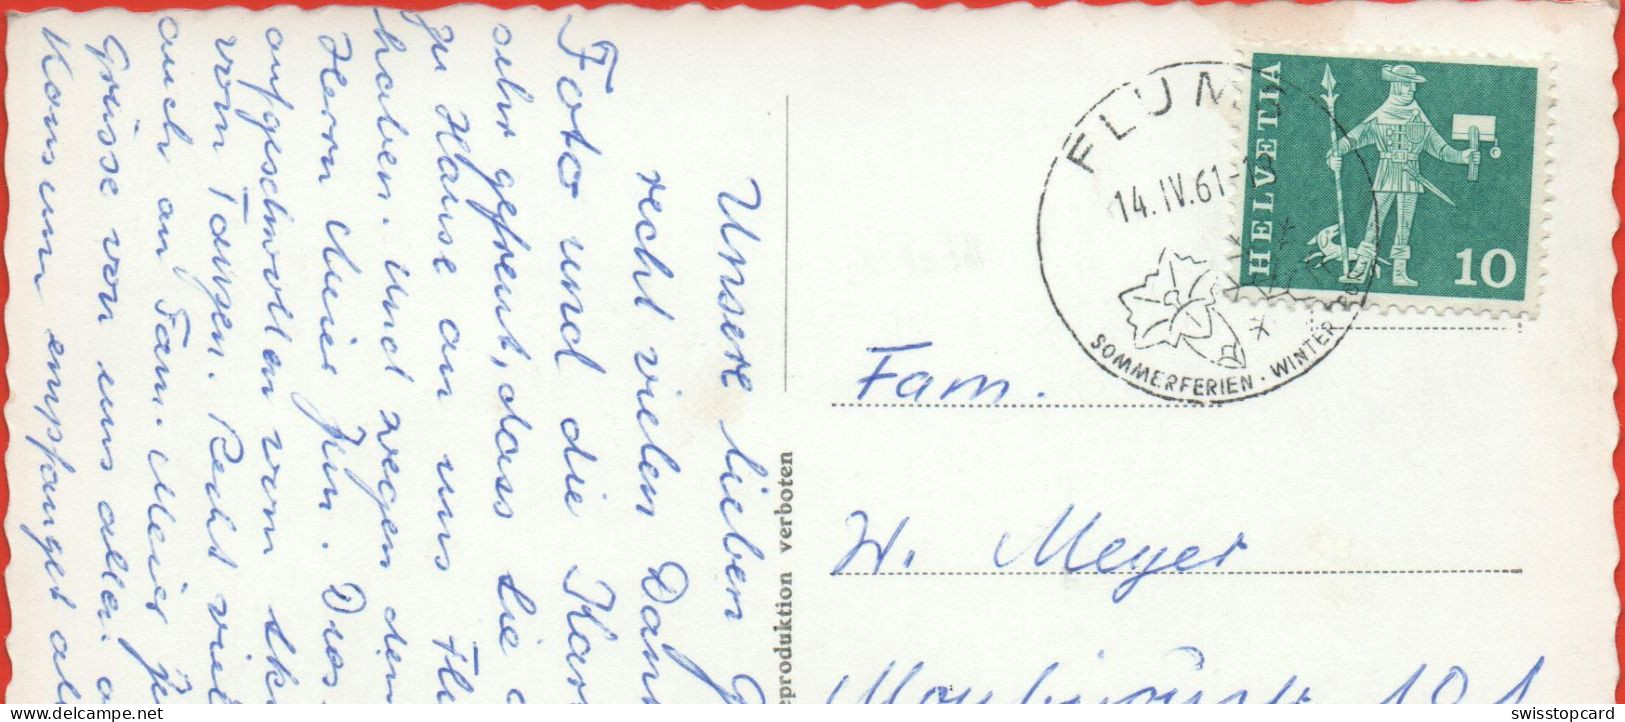 Unsere lieben
recht vielen Dank
Foto und die Kar
sehr gefreut, dass Sie
zu Hause an uns
haben. Und wegen dem
Herrn Meier Jun.
aufgeschwollen vom
vom Tanzen. Recht viel
auch an Fam. Meier
Grüsse von uns allen.
Konsum empfanget
produktion verboten
FLUMS
14.IV.61-
SOMMERFERIEN · WINTER
HELVETIA
10
Fam.
W. Meyer
101
swisstopcard